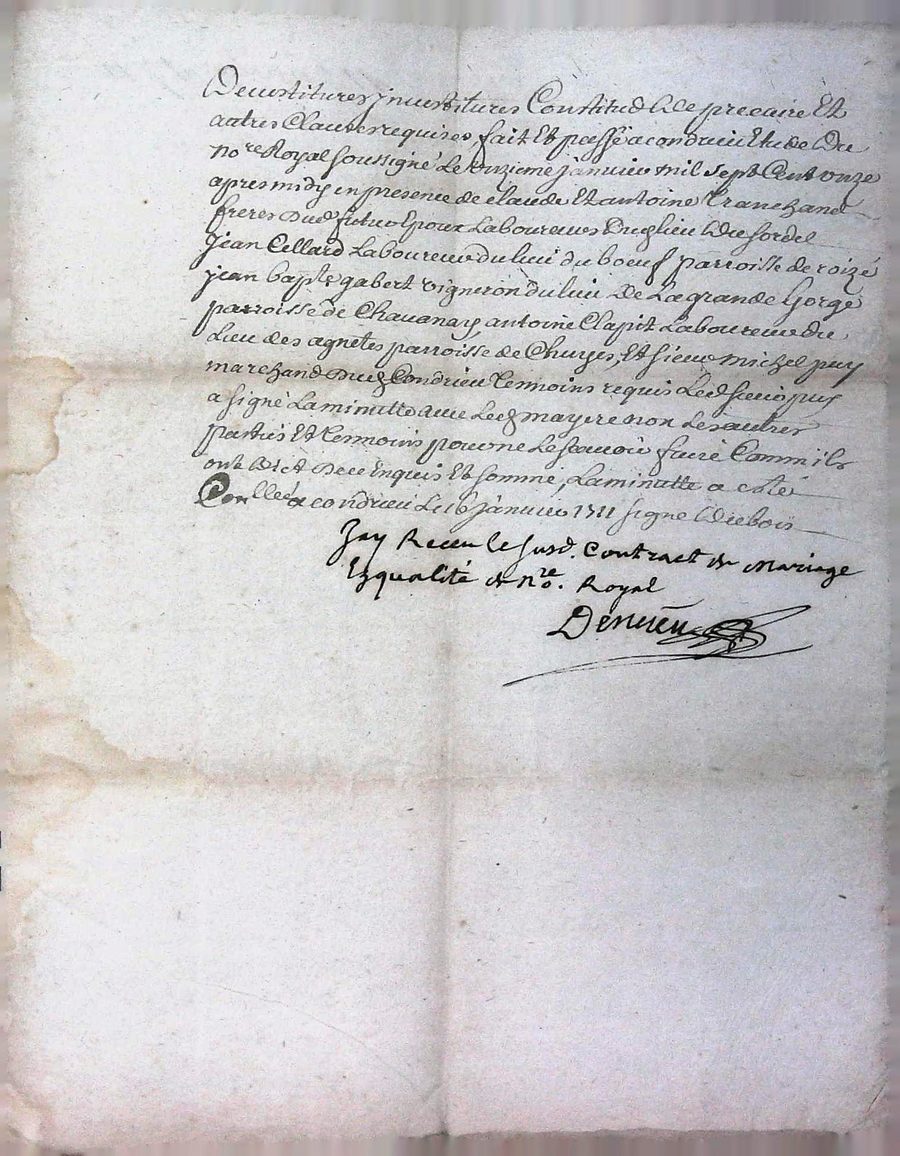 Devestitures jnvestitures Constitud de precaire Et
autres Clauses requises, fait Et passé a condrieu Etude Du
no.re Royal soussigné Le onzieme janvier mil sept Cent onze
apres midy en presence de claude Et antoine Tranchand
freres dud. futur Epoux Laboureurs du lieu du sordel
Jean Cellard Laboureur du lieu du boeuf parroisse de roizé
jean bapte gabert vigneron du lieu De La grande Gorge
parroisse de Chavanay, antoine Clapit Laboureur du
Lieu des agnetes parroisse de Chuyes, Et sieur michel puy
marchand dud. Condrieu temoins requis Led. sieur puy
a signé La minutte avec Led. mayere non Les autres
parties Et temoins pour ne Le scavoir faire Comm ils
ont dict De ce Enquis Et sommé, La minutte a esté
Conllée a condrieu Le 16 janvier 1711 signe Dubois
Jay Receu le susd. Contract de Mariage
Ezqualité de Nre. Royal